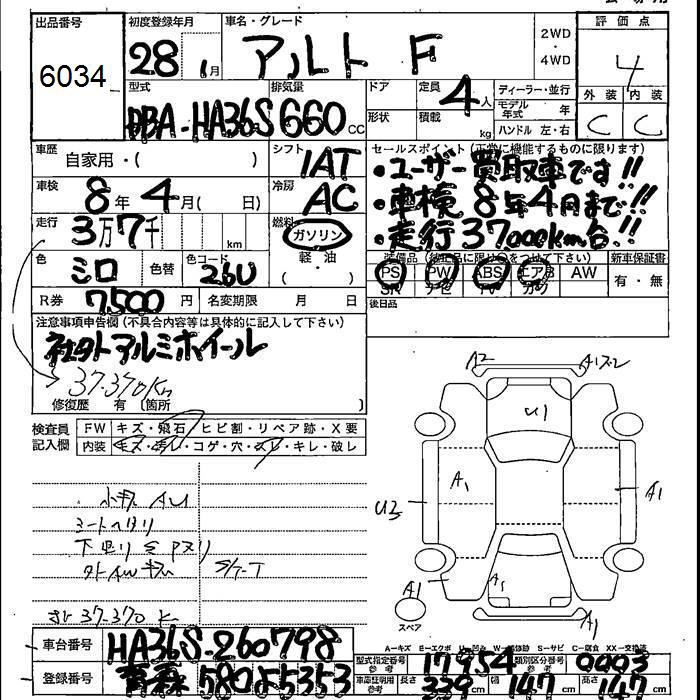 出品番号 初度登録年月 車名・グレード 評価点
6034 28年1月 アルト F 2WD・4WD 4
型式 排気量 ドア 定員 ディーラー・並行 外装 内装
DBA-HA36S 660cc 4人 モデル年式 年 C C
形状 積載 kg ハンドル 左・右
車歴 自家用・( ) シフト 1AT セールスポイント(正常に機能するものに限ります)
・ユーザー買取車です!!
車検 8年4月( 日) 冷房 AC ・車検 8年4月まで!!
走行 3万7千 km 燃料 ガソリン ・走行37000km台!!
軽・油
( )
色 シロ 色替 色コード 26U
装備品(純正品に限り○をつけて下さい) 新車保証書
PS PW ABS エアB AW 有・無
SR ナビ TV カワ
R券 7,500円 名変期限 月 日 後日品
注意事項申告欄(不具合内容等は具体的に記入して下さい)
社外アルミホイール
37.370Km
修復歴 有 〔箇所 〕
検査員記入欄 FW キズ・飛石・ヒビ割・リペア跡・X要
内装 キズ・汚レ・コゲ・穴・スレ・キレ・破レ
A2 A1X2
U1
A1
U3 A1
A1
スペア
A1
A1
A−キズ E−エクボ U−凹み W−補修跡 S−サビ C−腐食 XX−交換済
車台番号 HA36S-260798 型式指定番号 参考 17954 類別区分番号 参考 0003
登録番号 青森 580 5353 車庫証明用 参考 長さ 339 cm 幅 147 cm 高さ 147 cm